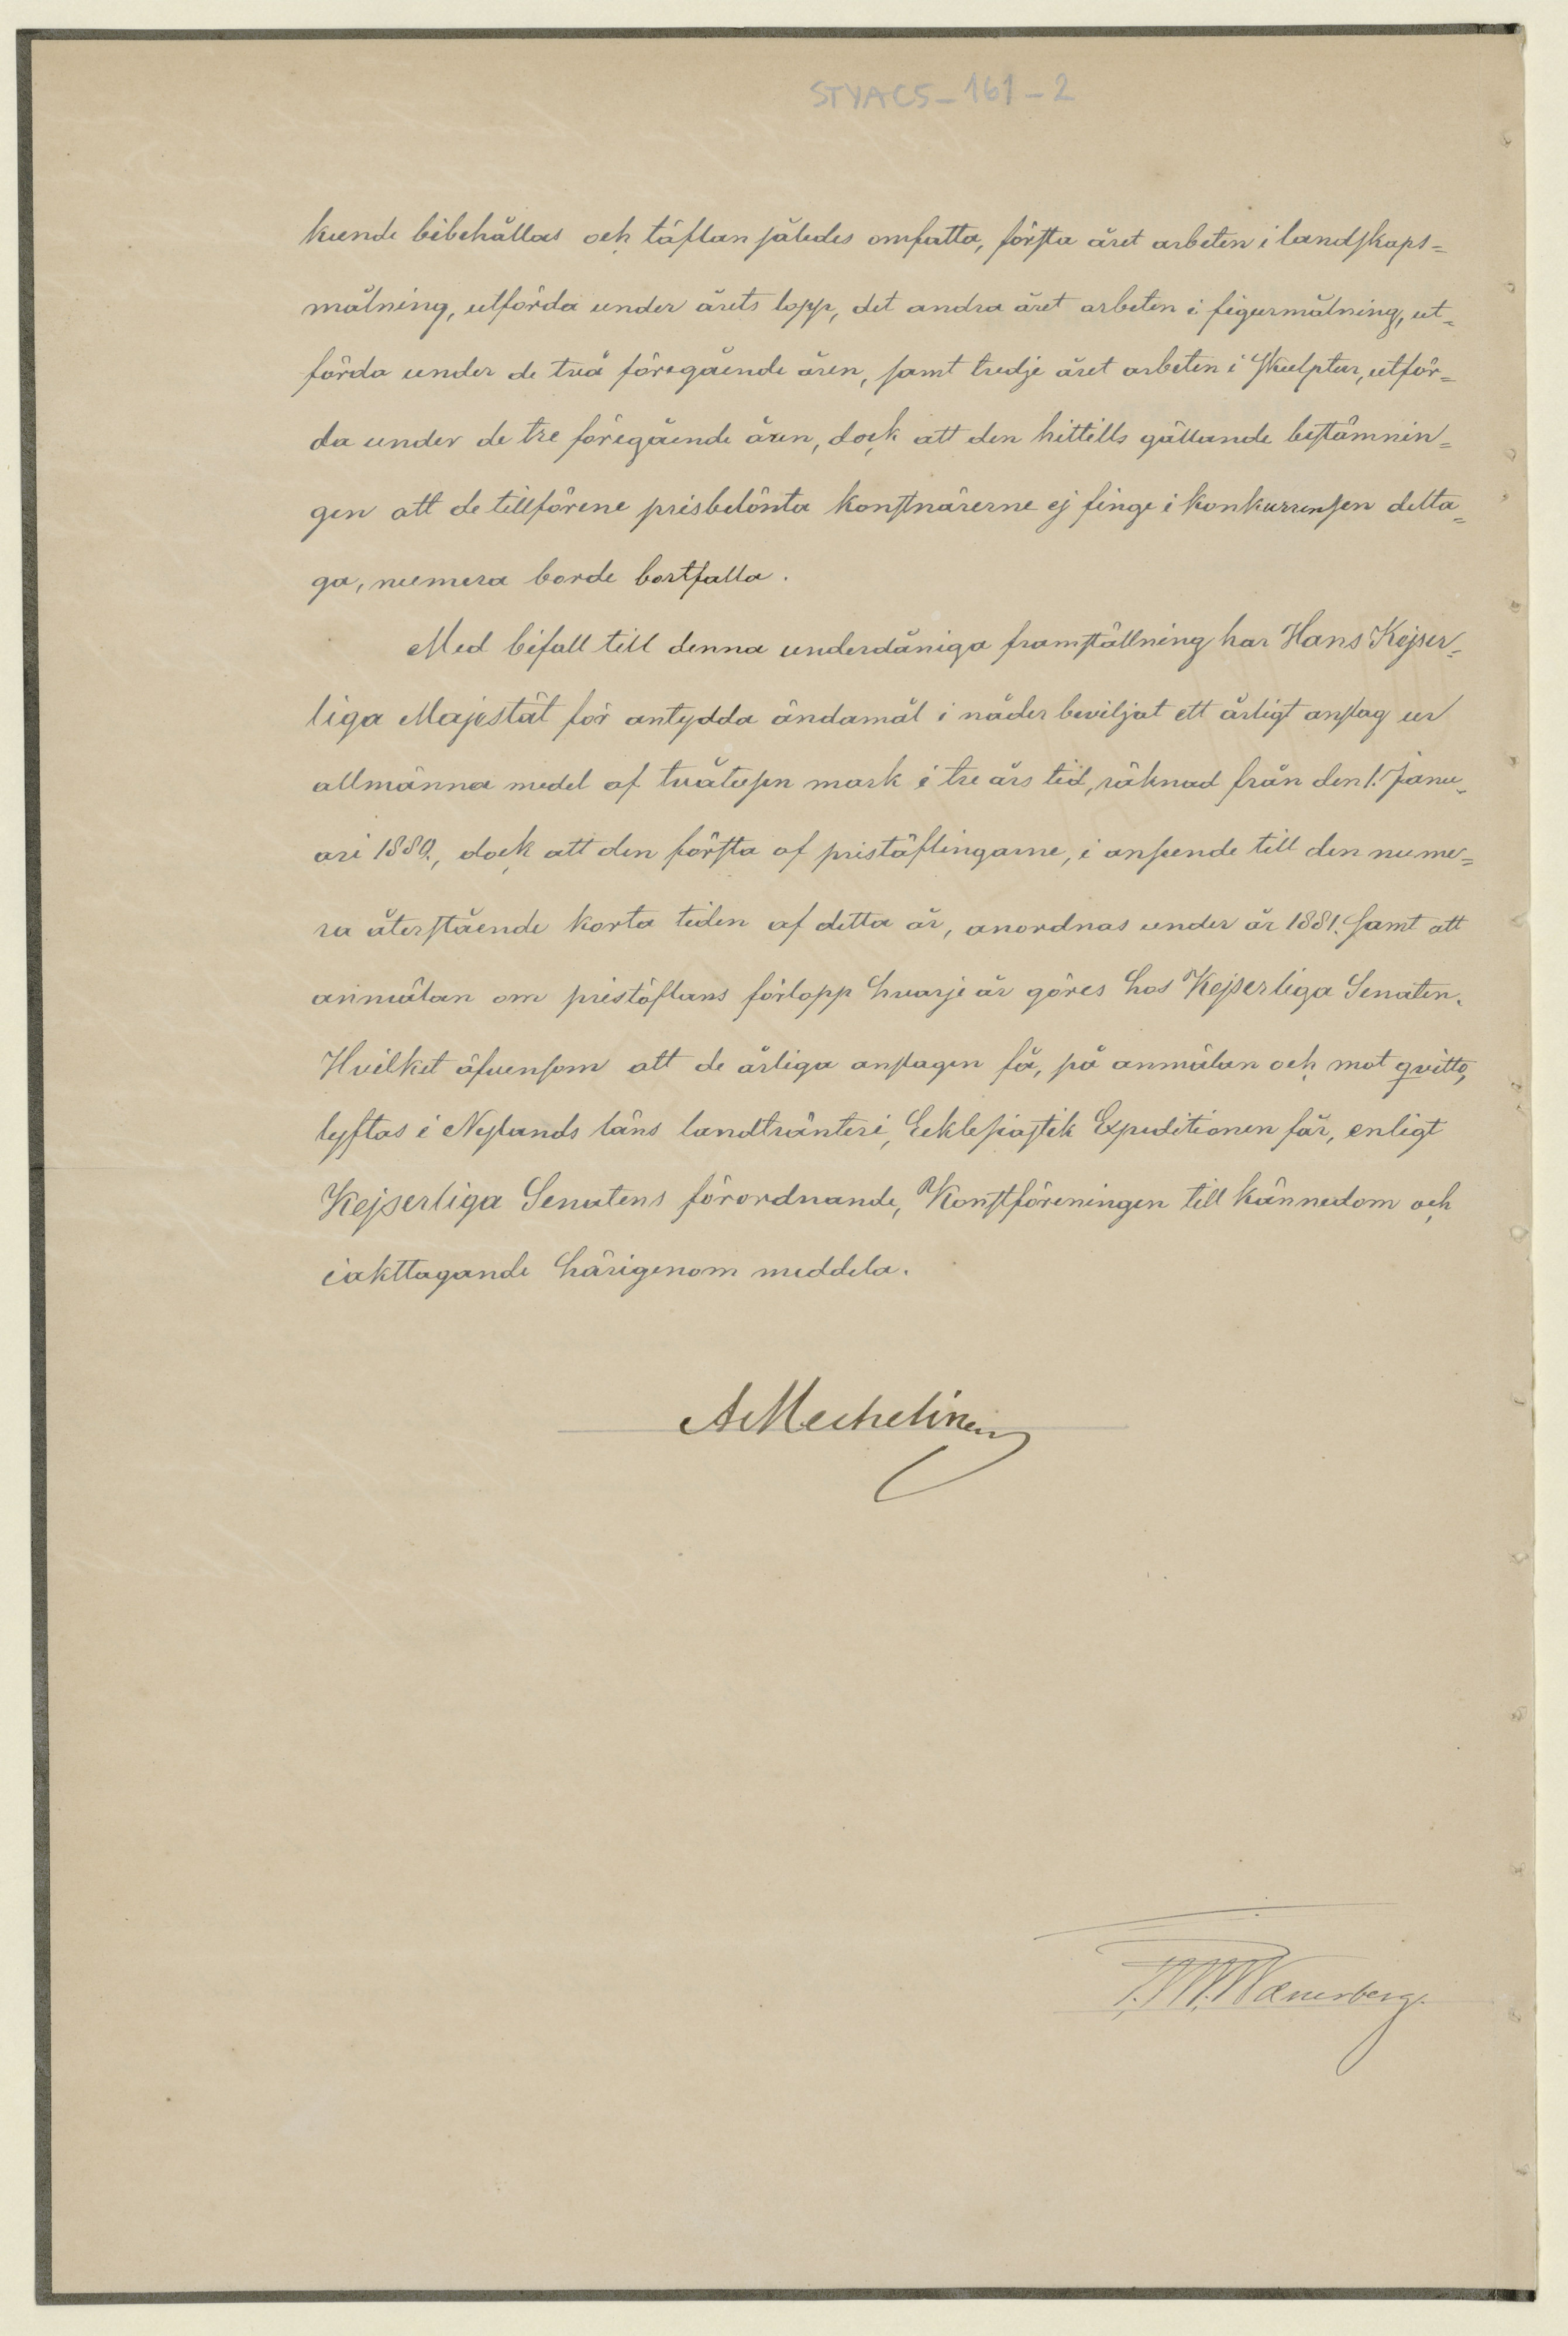 STYACS-161-2
kunde bibehållas och täflan således omfatta, första året arbeten i landskaps=
målning, utförda under årets lopp, det andra året arbeten i figurmålning, ut=
förda under de två föregående åren, samt tredje året arbeten i Skulptur, utför=
da under de tre föregående åren, dock att den hittills gällande bestämnin=
gen att de tillförene prisbelönta konstnärerne ej finge i konkurrensen delta=
ga, numera borde bortfalla.
Med bifall till denna underdåniga framställning har Hans Kejser=
liga Majestät för antydda ändamål i nåder beviljat ett årligt anslag ur
allmänna medel af tvåtusen mark i tre års tid, räknad från den 1. Janu=
ari 1880., dock att den första af pristäflingarne, i anseende till den nume=
ra återstående korta tiden af detta år, anordnas under år 1881. samt att
anmälan om pristäflans förlopp hvarje år göres hos Kejserliga Senaten.
Hvilket äfvensom att de årliga anslagen få, på anmälan och mot qvitto,
lyftas i Nylands läns landtränteri, Ecklesiastik Expeditionen får, enligt
Kejserliga Senatens förordnande, Konstföreningen till kännedom och
iakttagande härigenom meddela.
A Mechelinen